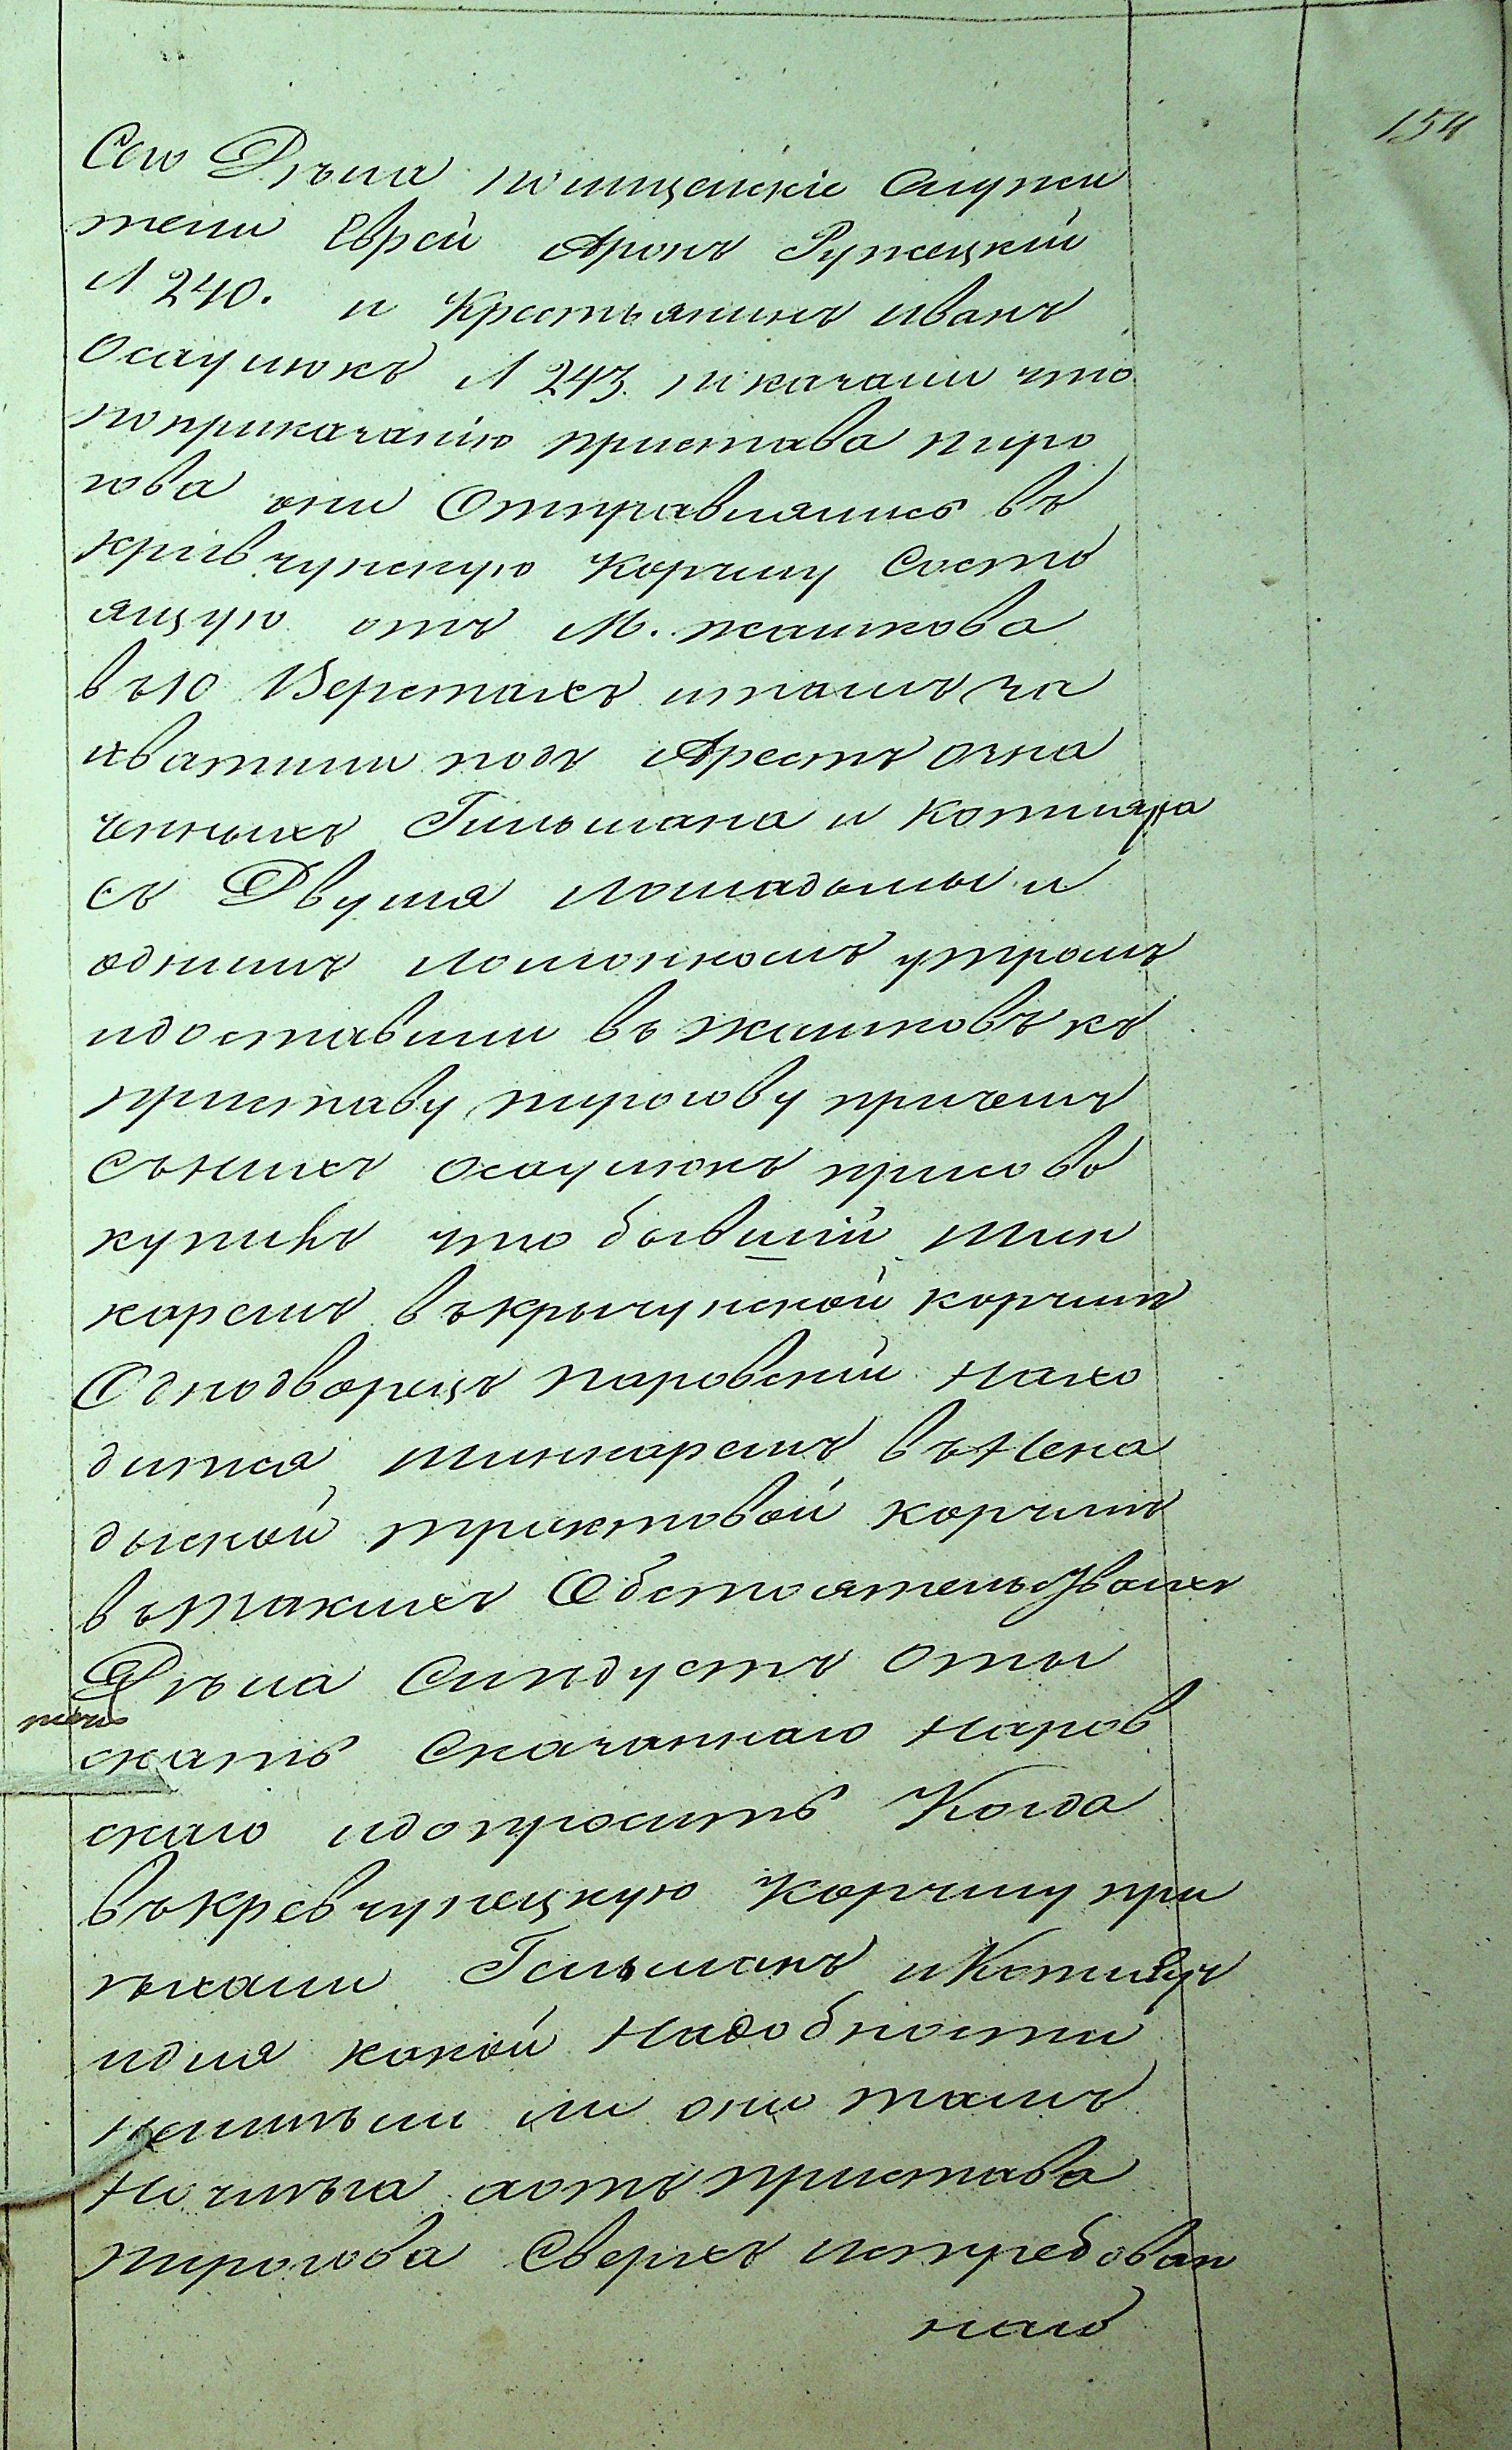 154
Сего Дѣла полицейскіе Служи
тели Еврей Аронъ Ружецкій
Л 240. и Крестьянинъ Иванъ
Осаулюкъ Л 243. показали что
поприказанію пристава пиро
гова они Отправлялись въ
кривчунскую Корчму Состо
ящую отъ М. жашкова
въ 10 Верстахъ итамъ за
хватили подъ Арестъ озна
ченныхъ Гильмана и Котляра
съ Двумя лошадьмы и
однимъ лошонкомъ утромъ
идоставили въ жашковъ къ
приставу пирогову причемъ
сънихъ осаулюкъ присово
купилъ что бывшій шин
каремъ въкрычунской корчмѣ
Однодворецъ наровскій нахо
дится шинкаремъ въ
дыской трактовой корчмѣ
втакихъ Обстоятельствахъ
Дѣла Слѣдуетъ оты
скать Сказаннаго Наров
скаго идопросить Когда
въкревчунецкую Корчму при
ѣхали Гильманъ иКотляръ
идля какой Надобности
неимѣли ли они тамъ
Ночлѣга аотъ пристава
пирогова Сверхъ истребован
наго